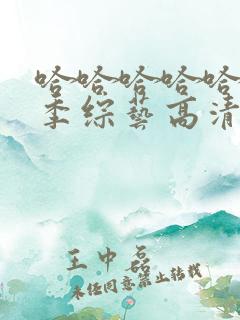 哈哈哈哈哈
季综艺高清
王中磊
未经同意禁止转载